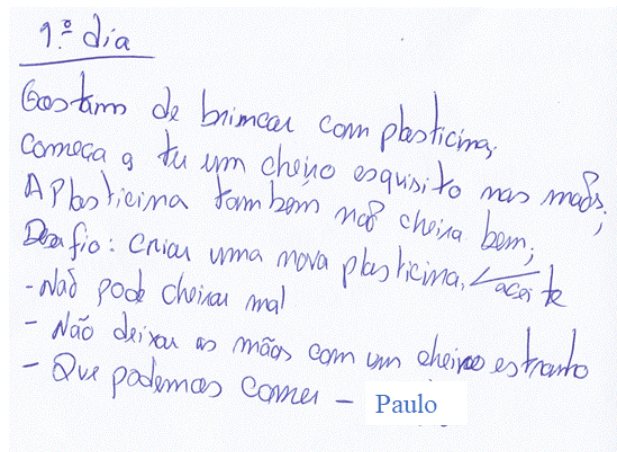 1.º dia
Gostam de brincar com plasticina;
Começa a ter um cheiro esquisito nas mãos;
A Plasticina também não cheira bem;
Desafio: Criar uma nova plasticina. aceite
- Não pode cheirar mal
- Não deixar as mãos com um cheiro estranho
- Que podemos comer - Paulo